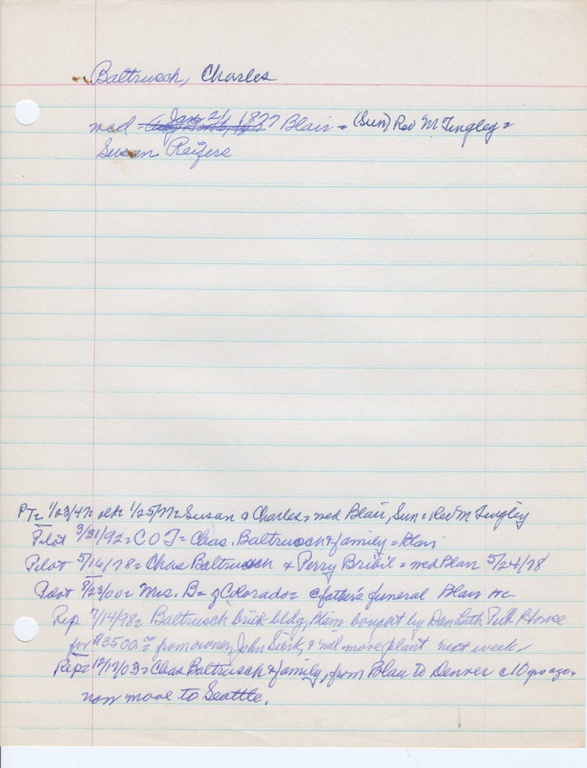 Baltrusch, Charles
med Jan 21, 1877 Blair = (Sun) Rev M Tingley =
Susan Reizere
PT= 1/23/47= 1/25/77= Susan & Charles, med Blair, Sun = Rev M Tingley
Pilot 3/31/92 = C O T = Chas. Baltruscn & family =
Pilot 5/16/78 = Chas Baltrusch & Perry Bribil = med 5/24/78
8/23/00= Mrs. B = of Colorado = father's funeral Blair
Rep 7/14/98= Baltrusch brick bldg, bought by Dan Luth Pub House
for $3500.00 from owner, John & will move plant next week,
Rep= 12/17/03= Chas Baltrusch & family, from Blair to Denver 10 yrs ago,
now move to Seattle.